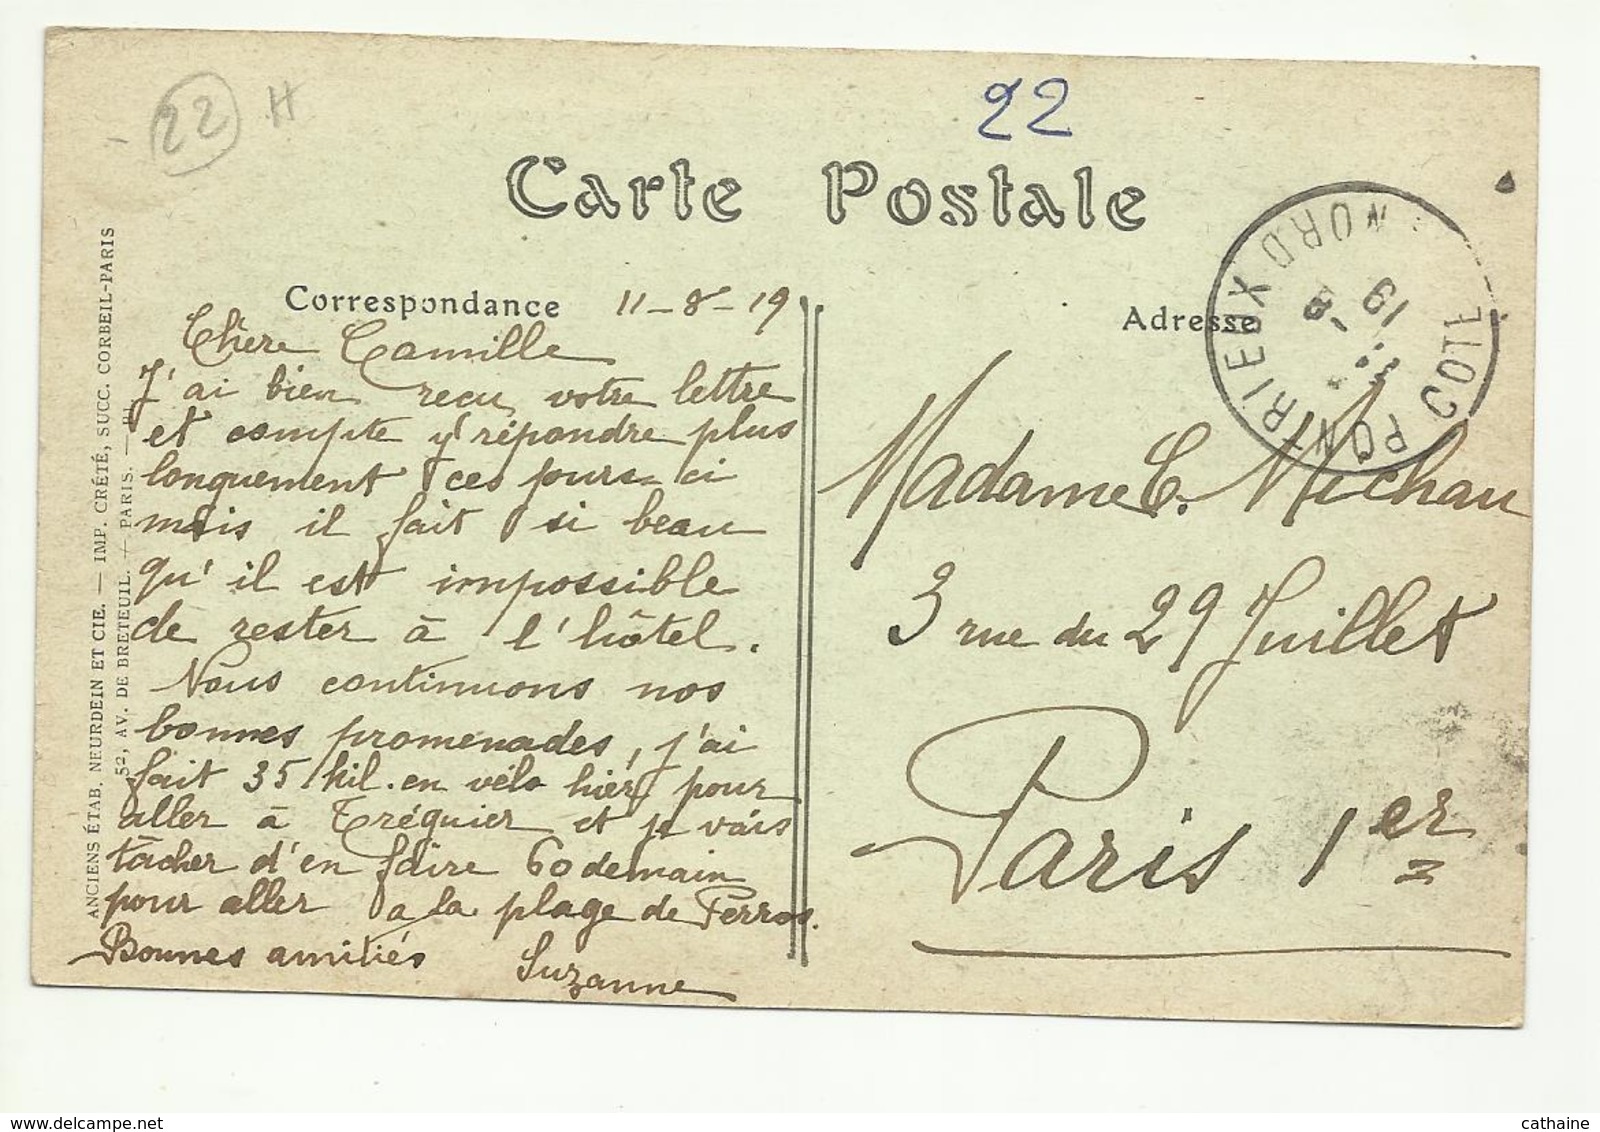 22 H
22
Carte Postale
Correspondance 11-8-19
Chère Camille
J'ai bien reçu votre lettre
et compte y répondre plus
longuement ces jours-ci
mais il fait si beau
qu'il est impossible
de rester à l'hôtel.
Nous continuons nos
bonnes promenades, j'ai
fait 35 kil. en vélo hier pour
aller à Tréguier et je vais
tâcher d'en faire 60 demain
pour aller a la plage de Perros.
Bonnes amitiés Suzanne
Adresse
Madame C. Michau
3 rue du 29 Juillet
Paris 1er
PONTRIEUX COTE NORD
8
19
ANCIENS ÉTAB. NEURDEIN ET CIE. — IMP. CRÉTÉ, SUCC. CORBEIL-PARIS
52, AV. DE BRETEUIL. — PARIS. —
cathaine